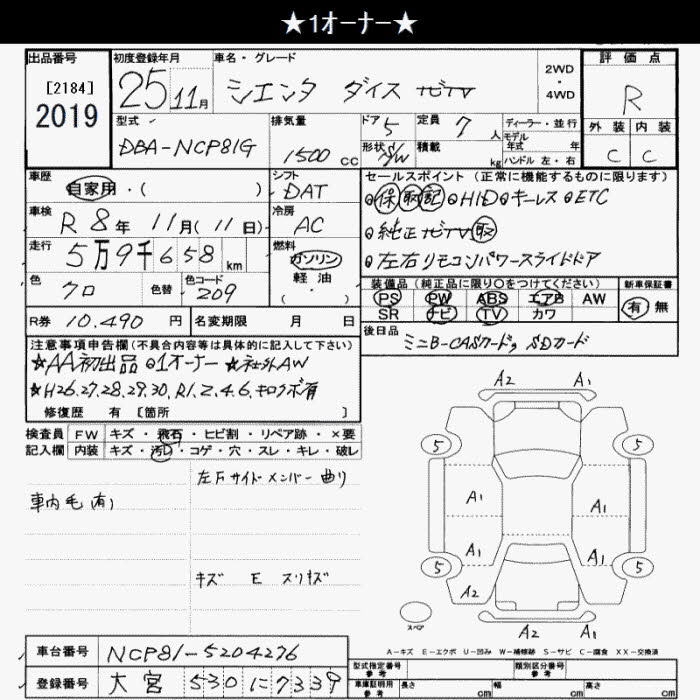 ★1オーナー★
出品番号
[2184]
2019
初度登録年月
25年11月
車名・グレード
シエンタ ダイス ナビTV
2WD
・
4WD
評価点
R
外装 内装
C C
型式
DBA-NCP81G
排気量
1500 CC
ドア 5
形状 S/W
定員 7 人
積載 kg
ディーラー・並行
モデル年式 年
ハンドル 左・右
車歴
自家用・( )
シフト
DAT
車検
R 8年 11月(11日)
冷房
AC
走行
5万9千658 km
燃料
ガソリン
軽油
( ・ )
色
クロ
色替
色コード
209
R券 10.490 円
名変期限 月 日
セールスポイント (正常に機能するものに限ります)
◎保取記◎HID◎キーレス◎ETC
◎純正ナビTV取
◎左右リモコンパワースライドドア
装備品 (純正品に限り〇をつけてください)
PS PW ABS エアB AW
SR ナビ TV カワ
新車保証書
有 無
後日品
ミニB-CASカード, SDカード
注意事項申告欄(不具合内容等は具体的に記入して下さい)
★AA初出品 ◎1オーナー ★社外AW
★H26.27.28.29.30.R1.2.4.6.キロクボ有
修復歴 有 [箇所 ]
検査員記入欄
FW キズ・飛石・ヒビ割・リペア跡・×要
内装 キズ・汚レ・コゲ・穴・スレ・キレ・破レ
車内毛有り
左右サイドメンバー曲り
キズ E スリキズ
A2 A1
5 5
A1 A1
A1 A1
5 5
A2 A2
A2 A1
スペア
A-キズ E-エクボ U-凹み W-補修跡 S-サビ C-腐食 XX-交換済
車台番号 NCP81-5204276
登録番号 大宮 530 に 7339
型式指定番号 参考
類別区分番号 参考
車庫証明用 参考
長さ cm
幅 cm
高さ cm